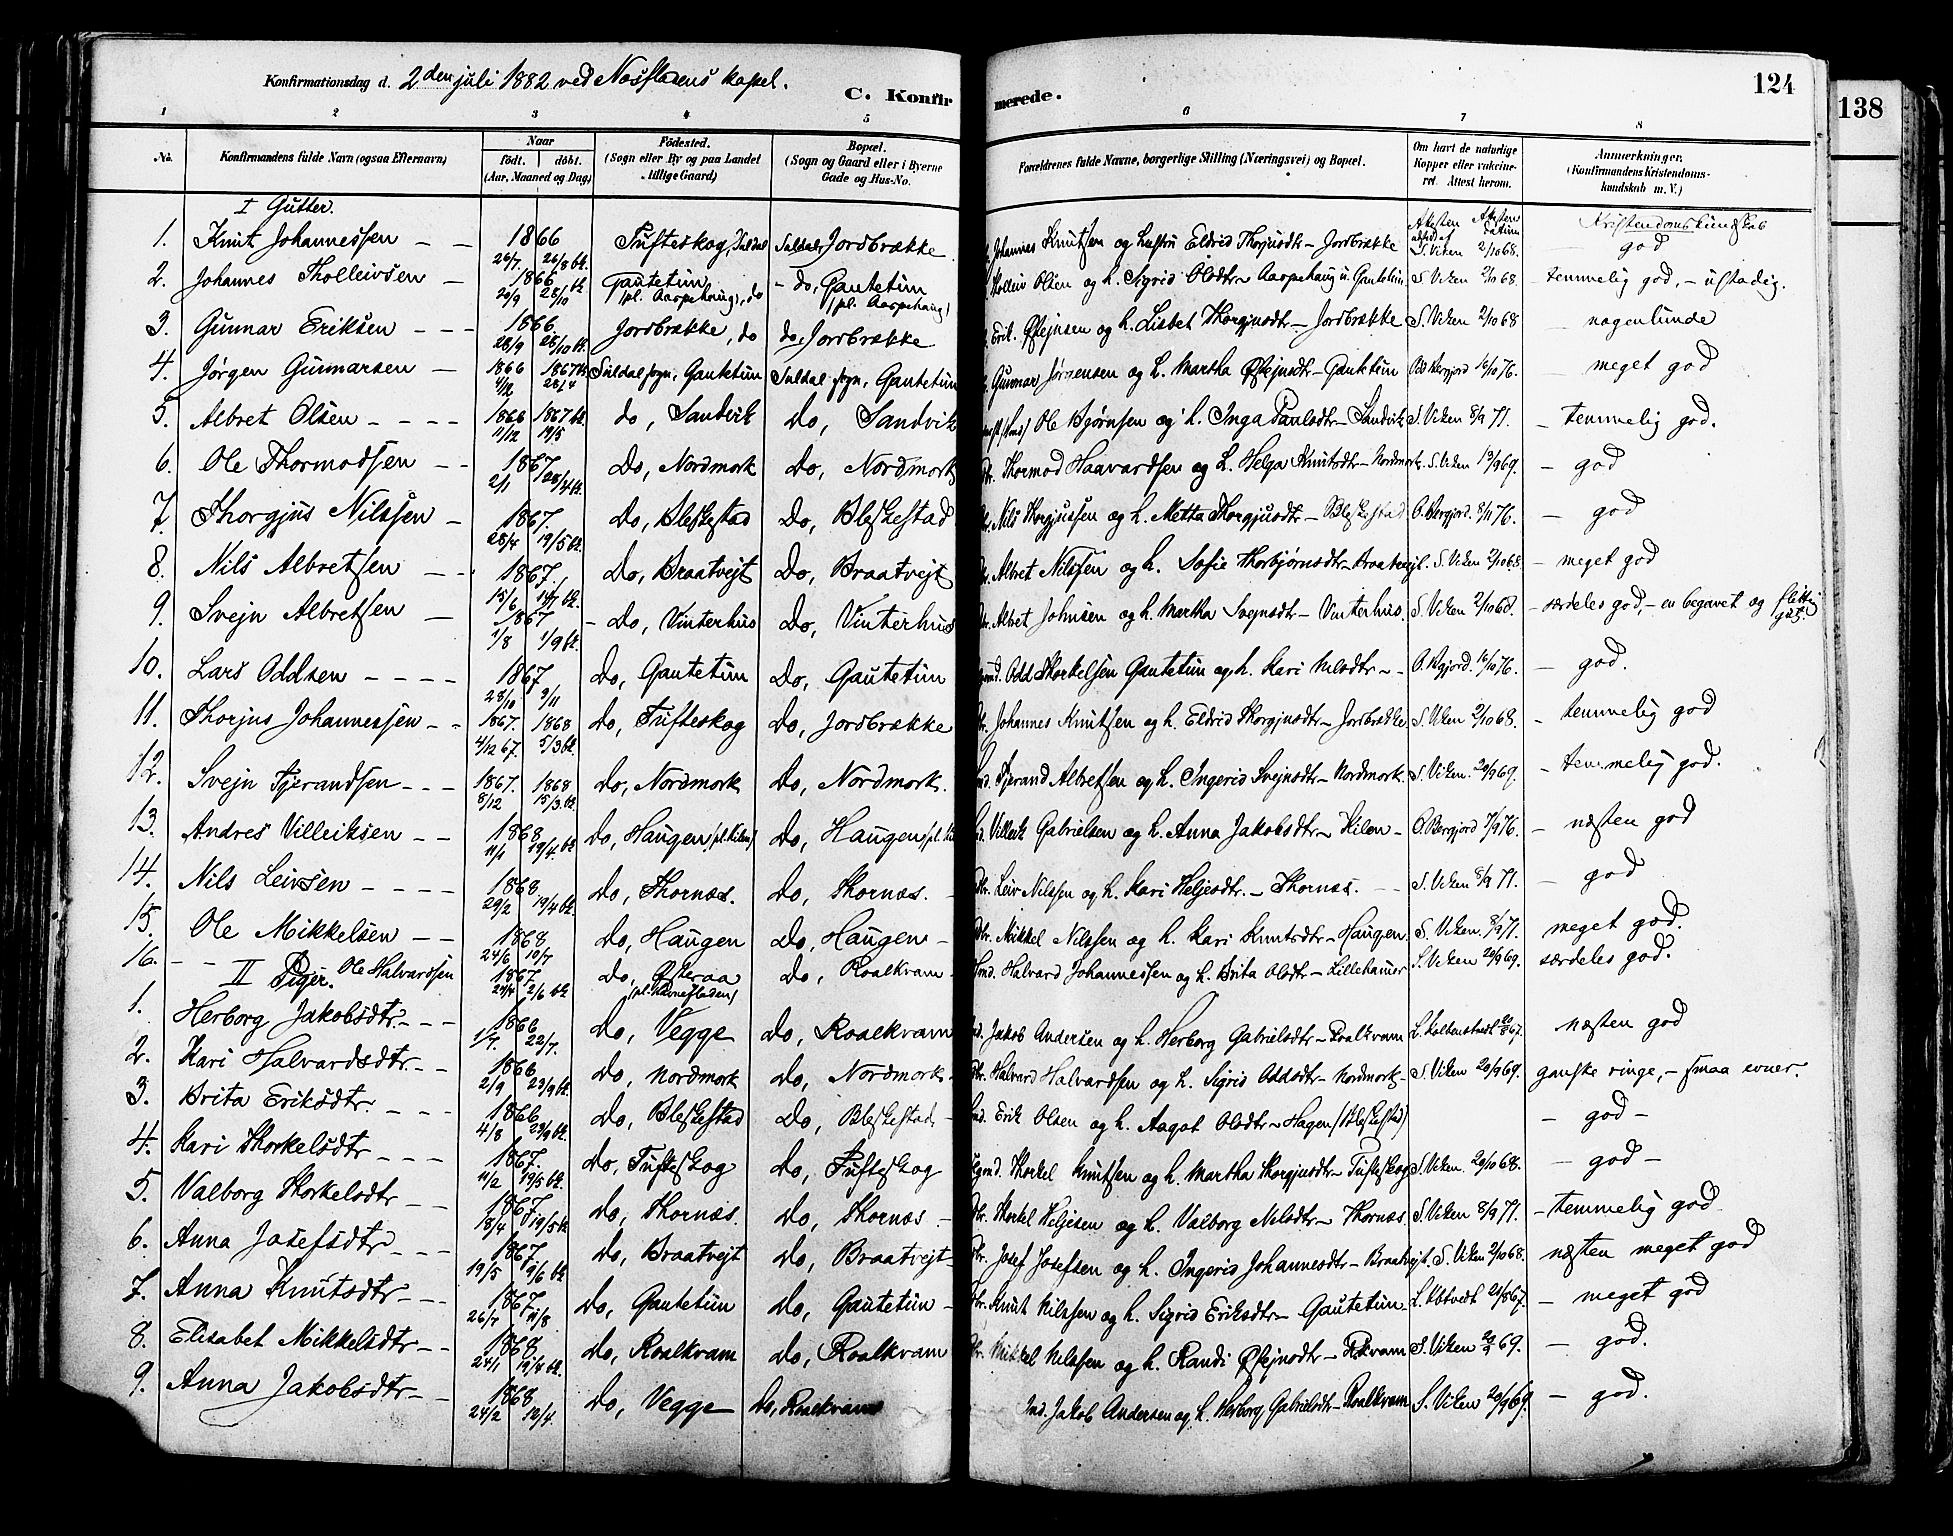 Konfirmationsdag d. 2den juli 1882 ved Næsfladens kapel.
C. Konfir merede. 124
138
1 2 3 4 5 6 7 8
No. Konfirmandens fulde Navn (ogsaa Efternavn) Naar født. døbt. (Aar, Maaned og Dag) Födested. (Sogn eller By og paa Landet tillige Gaard) Bopæl. (Sogn og Gaard eller i Byerne Gade og Hus-No. Forældrenes fulde Navne, borgerlige Stilling (Næringsvei) og Bopæl. Om havt de naturlige Kopper eller vakcineret. Attest herom. Anmærkninger. (Konfirmandens Kristendomskundskab m. V.)
I Gutter. Attesten Attesten Kristendomskundskab
1. Knut Johannessen 1866 26/7 26/8 Tufteskog, Suldal Suldal, Jordbrække Johannes Knutsen og hustru Eldrid Thorjusdtr Jordbrække S. Viken 2/10 68. god
2. Johannes Tholleivsen 1866 20/9 28/10 Gautetun (pl. Aarpehaug), do do, Gautetun (pl. Aarpehaug) Tholleiv Olsen og h. Sigrid Olsdtr Aarpehaug u. Gautetun S. Viken 2/10 68 temmelig god, - ustadig.
3. Gunnar Eriksen 1866 28/9 28/10 Jordbrække, do do, Jordbrække Erik Østejnsen og h. Lisbet Thorgjusdtr Jordbrække S. Viken 2/10 68 nogenlunde
4. Jørgen Gunnarsen 1866 1867 28/4 Suldal sogn, Gautetun Suldal sogn, Gautetun Gunnar Jørgensen og h. Martha Østejnsdtr Gautetun Bergjord 16/10 76. meget god
5. Albret Olsen 1866 11/12 1867 19/5 do, Sandvik Do, Sandvik Ole Bjørnsen og h. Inga Paulsdtr Sandvik S. Viken 8/9 71. temmelig god.
6. Ole Thormodsen 1867 2/1 28/4 Do, Nordmork Do, Nordmork Thormod Haavardsen og h. Helga Knutsdtr Nordmork. S. Viken 19/9 69. god
7. Thorgjus Nilssen 1867. 28/4 19/5 Do, Bleskestad Do, Bleskestad Nils Thorgjussen og h. Metta Thorgjusdtr Bleskestad O. Bergjord. 76. god
8. Nils Albretsen 1867. 15/6 14/7 Do, Braatvejt Do, Braatvejt Albret Nilssen og h. Sofie Thorbjørnsdtr Braatvejt. S. Viken 2/10 68. meget god
9. Svejn Albretsen 1867 1/8 1/9 Do, Vinterhus Do, Vinterhus Albret Johnsen og h. Martha Svejnsdtr Vinterhus. S. Viken 2/10 68. særdeles god, - en begavet og flittig gut.
10. Lars Oddsen 1867 28/10 9/11 Do, Gautetun Do, Gautetun Odd Thorkelsen Gautetun og h. Kari Nilsdtr 16/10 76. god.
11. Thorjus Johannessen 1867. 4/12 67. 1868 5/3 Do, Tufteskog Do, Jordbrække Johannes Knutsen og h. Eldrid Thorgjusdtr Jordbrække S. Viken 2/10 68. temmelig god
12. Svejn Tjerandsen 1867. 5/12 1868 15/3 Do, Nordmork Do, Nordmork. Tjerand Albretsen og h. Ingerid Svejnsdtr Nordmork. S. Viken. 20/9 69. temmelig god.
13. Andres Villeiksen 1868 11/1 19/4 Do, Haugen (pl. Kilen) Do, Haugen Villeik Gabrielsen og h. Anna Jakobsdtr Kilen O. Bergjord 7/9 76. næsten god
14. Nils Leivsen 1868 29/2 19/4 Do, Thornæs. Do, Thornæs. Leiv Nilssen og h. Kari Heljesdtr. Thornæs. S. Viken 8/9 71. god
15. Ole Mikkelsen 1868 24/6 10/7 Do, Haugen Do, Haugen Mikkel Nilssen og h. Kari Knutsdtr Haugen S. Viken. 8/9 71. meget god.
16. Ole Halvardsen 1867. 2/6 Do, Østeraa (pl. Havnefladen) Do, Roalkvam Halvard Johannessen og h. Brita Olsdtr Lillehamer S. Viken 20/9 69. særdeles god.
II Piger.
1. Herborg Jakobsdtr 1866 1/7. 22/7. Do, Vegge Do, Roalkvam Jakob Andersen og h. Herborg Gabrielsdtr Roalkvam 67. næsten god
2. Kari Halvardsdtr 1866 2/9 23/9 Do, Nordmork Do, Nordmork Halvard Halvardsen og h. Sigrid Oddsdtr Nordmork S. Viken 20/9 69. ganske ringe, - smaa evner.
3. Brita Eriksdtr. 1866 4/8 23/9 Do, Bleskestad Do, Bleskestad Erik Olsen og h. Aagot Olsdtr Hagen (Bleskestad) god
4. Kari Thorkelsdtr 1867. 11/2 19/5 Do, Tufteskog Do, Tufteskog Thorkel Knutsen og h. Martha Thorgjusdtr Tufteskog S. Viken. 20/10 68. god
5. Valborg Thorkelsdtr 1867 18/4 19/5 Do, Thornæs. Do, Thornæs Thorkel Heljesen og h. Valborg Nilsdtr Thornæs S. Viken 8/9 71. temmelig god
6. Anna Josefsdtr 1867 19/5 9/6 Do, Braatvejt Do, Braatvejt Josef Josefsen og h. Ingerid Johannesdtr Braatvejt. S. Viken 2/10 68. næsten meget god
7. Anna Knutsdtr 1867 26/7 11/8 Do, Gautetun Do, Gautetun Knut Nilssen og h. Sigrid Eriksdtr Gautetun 67. meget god
8. Elisabet Mikkelsdtr 1868 24/1 19/4 Do, Roalkvam Do, Roalkvam Mikkel Nilssen og h. Randi Østejnsdtr S. Viken 69. god.
9. Anna Jakobsdtr 1868 24/2 12/4. Do, Vegge Do, Roalkvam Ind. Jakob Andersen og h. Herborg Gabrielsdtr Roalkvam S. Viken 20/9 69. god.